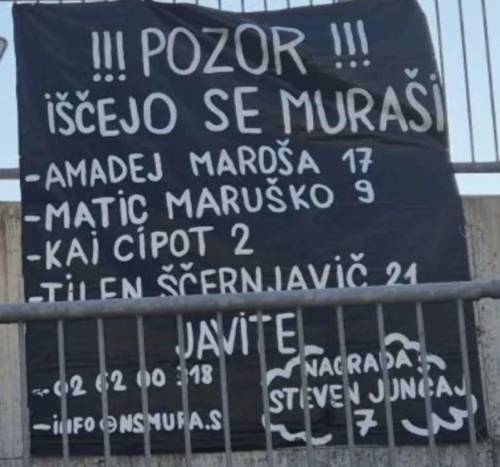 !!! POZOR !!!
IŠČEJO SE MURAŠI
-AMADEJ MAROŠA 17
-MATIC MARUŠKO 9
-KAI CIPOT 2
-TILEN ŠČERNJAVIČ 21
JAVITE
-02 62 00 318
-INFO@NSMURA.S
NAGRADA:
STEVEN JUNČAJ
7